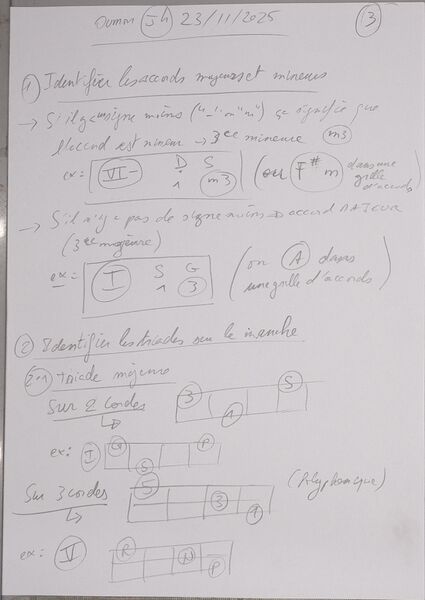 J4 23/11/2025 3
① Identifier les accords majeurs et mineurs
→ S'il y a un signe moins ("-" ou "m") ça signifie que
l'accord est mineur → 3ce mineure (m3)
ex: VI- D S (ou F#m dans une
1 m3 grille
d'accords)
→ S'il n'y a pas de signe moins → accord MAJEUR
(3ce majeure)
ex: I S G (ou A dans
1 3 une grille d'accords)
② Identifier les triades sur le manche
2.1 triade majeure
Sur 2 cordes 3 1 5
ex: I G S P
Sur 3 cordes 5 3 1
ex: V R N P